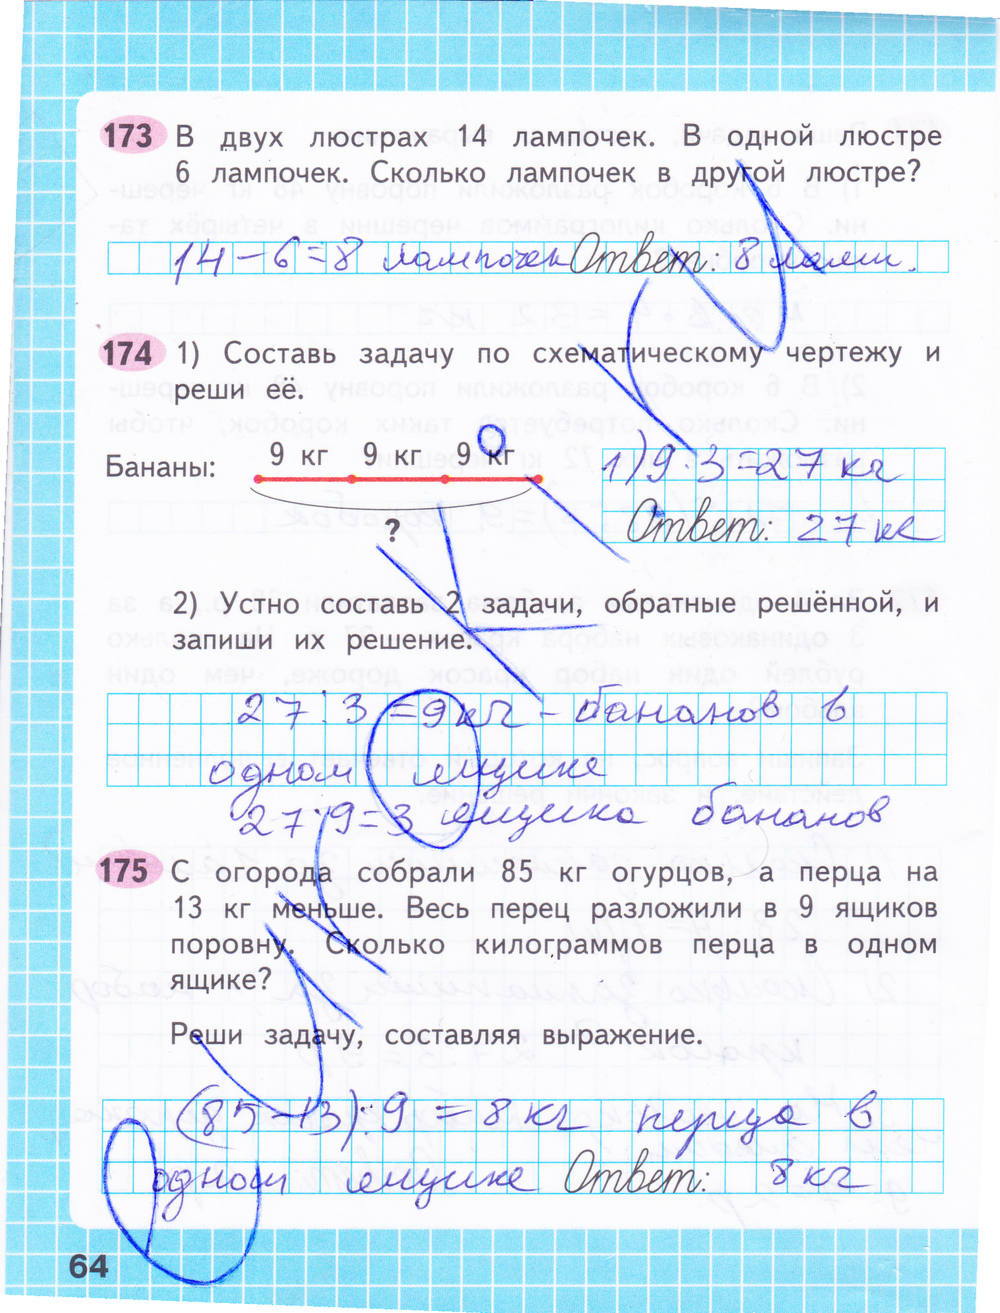 173 В двух люстрах 14 лампочек. В одной люстре
6 лампочек. Сколько лампочек в другой люстре?
14-6=8 лампочек Ответ: 8 лами.
174 1) Составь задачу по схематическому чертежу и
реши её.
Бананы: 9 кг 9 кг 9 кг
?
1) 9·3=27 кг
Ответ: 27 кг
2) Устно составь 2 задачи, обратные решённой, и
запиши их решение.
27:3=9 кг - бананов в
одном ящике
27:9=3 ящика бананов
175 С огорода собрали 85 кг огурцов, а перца на
13 кг меньше. Весь перец разложили в 9 ящиков
поровну. Сколько килограммов перца в одном
ящике?
Реши задачу, составляя выражение.
(85-13):9=8 кг перца в
одном ящике Ответ: 8 кг
64